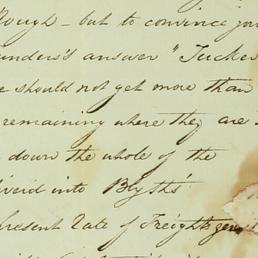 Pough - but to convince you
unders's answer "Tucker
e should not get more than
remaining where they are
down the whole of the
liverd into Blyth's
present Rate of Freight gen